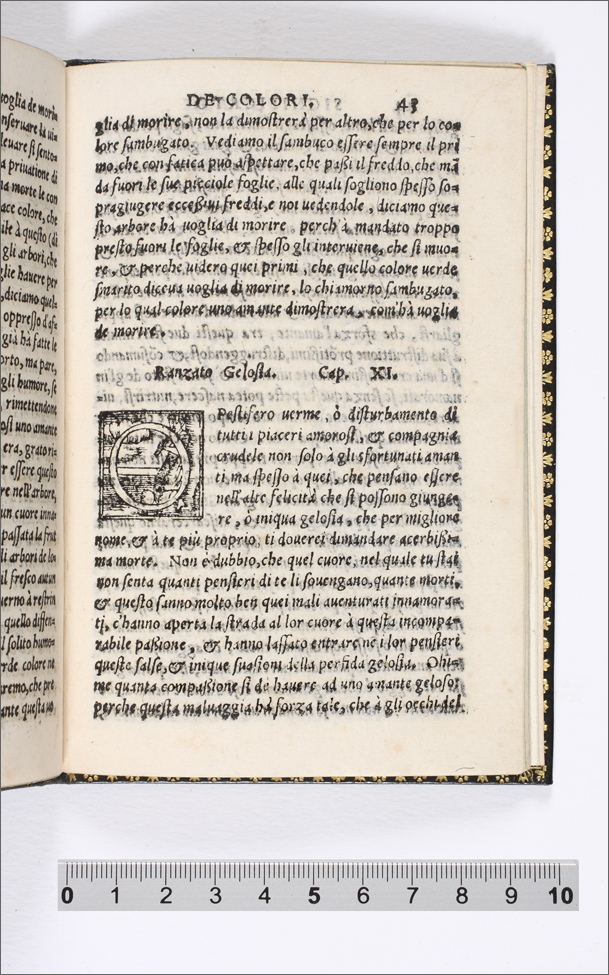 voglia de morire
nseruare la ui
leuare si sento
a priuatione di
la morte le con
ace colore, che
ile à questo (di
gli arbori, che
glie hauere per
, diciamo quel
oppresso d'af
già hà fatte le
orto, ma pare,
gli humore, se
, rimettendone
osi uno amante
era, grato ri
r essere questo
re nell'arbore,
un cuore inna
passata la frut
li arbori de lo
il fresco autun
uerno à restrin
quello differen
l solito humo
rde colore ne
remo, che pre
ante questa uo
DE COLORI. 45
glia di morire, non la dimostrerà per altro, che per lo co=
lore sambugato. Vediamo il sambuco essere sempre il pri
mo, che con fatica può aspettare, che passi il freddo, che mā
da fuori le sue picciole foglie, alle quali sogliono spesso so=
pragiugere eccessiui freddi, e noi uedendole, diciamo que=
sto arbore hà uoglia di morire, perch'à mandato troppo
presto fuori le foglie, & spesso gli interuiene, che si muo=
re, & perche uidero quei primi, che quello colore uerde
smarito diceua uoglia di morire, lo chiamorno sambugato,
per lo qual colore uno amante dimostrera, com'hà uoglia
de morire.
Ranzato Gelosia. Cap. XI.
O Pestifero uerme, ò disturbamento di
tutti i piaceri amorosi, & compagnia
crudele non solo à gli sfortunati aman
ti, ma spesso à quei, che pensano essere
nell'alte felicità che si possono giunge=
re, ò iniqua gelosia, che per migliore
nome, & à te più proprio, ti douerei dimandare acerbissi=
ma morte. Non è dubbio, che quel cuore, nel quale tu stai
non senta quanti pensieri di te li souengano, quante morti,
& questo sanno molto ben quei mali auenturati innamora=
ti, c'hanno aperta la strada al lor cuore à questa incompa=
rabile passione, & hanno lassato entrare ne i lor pensieri
queste false, & inique suasioni della perfida gelosia. Ohi=
me quanta compassione si de hauere ad uno amante geloso,
perche questa maluaggia hà forza tale, che à gli occhi del
0 1 2 3 4 5 6 7 8 9 10